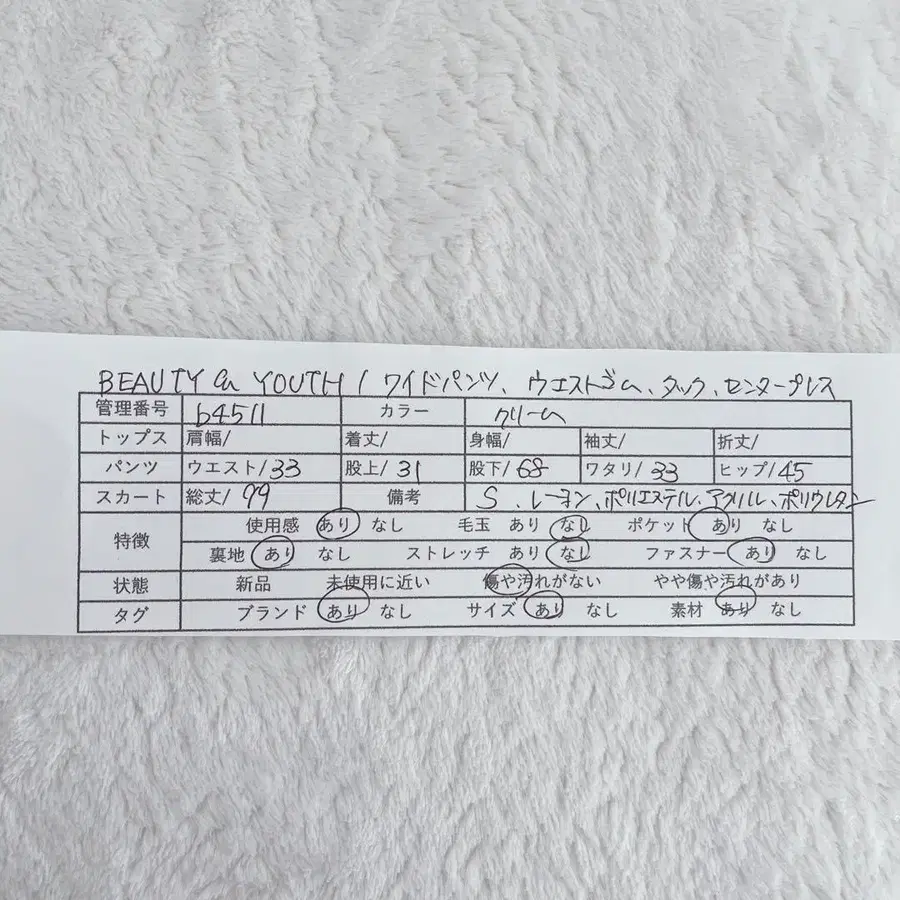 BEAUTY &n YOUTH / ワイドパンツ、ウエストゴム、タック、センタープレス
管理番号 b4511 カラー クリーム
トップス 肩幅/ 着丈/ 身幅/ 袖丈/ 折丈/
パンツ ウエスト/33 股上/31 股下/68 ワタリ/33 ヒップ/45
スカート 総丈/99 備考 S、レーヨン、ポリエステル、アクリル、ポリウレタン
特徴 使用感 あり なし 毛玉 あり なし ポケット あり なし
裏地 あり なし ストレッチ あり なし ファスナー あり なし
状態 新品 未使用に近い 傷や汚れがない やや傷や汚れがあり
タグ ブランド あり なし サイズ あり なし 素材 あり なし